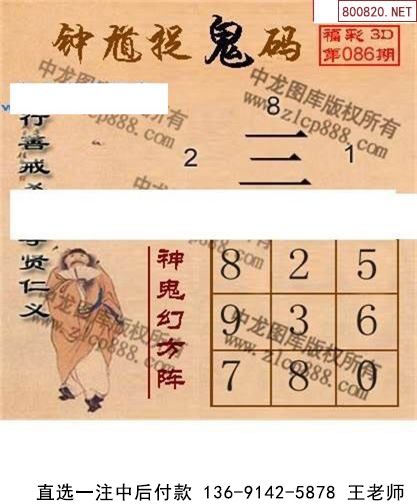 800820.NET
钟馗捉鬼码
福彩3D
第086期
中龙图库版权所有
www.zlcp888.com
8
2 三 1
行善戒
贤仁义
神鬼幻方阵
8 2 5
9 3 6
7 8 0
中龙图库版权所有
www.zlcp888.com
直选一注中后付款 136-9142-5878 王老师